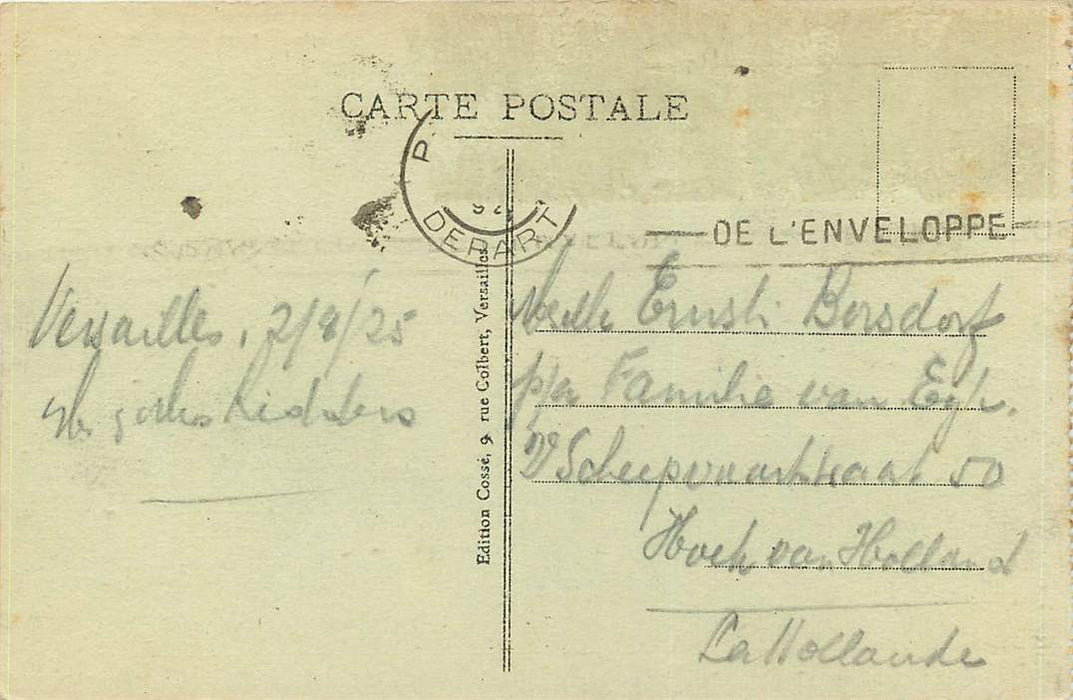 CARTE POSTALE
P
DEPART
DE L'ENVELOPPE
Versailles, 2/8/25
Edition Cossé, 9, rue Colbert, Versailles
Ernst Borsdorf
p/a Familie van Eyk.
Scheepvaartstraat 50
Hoek van Holland
La Hollande